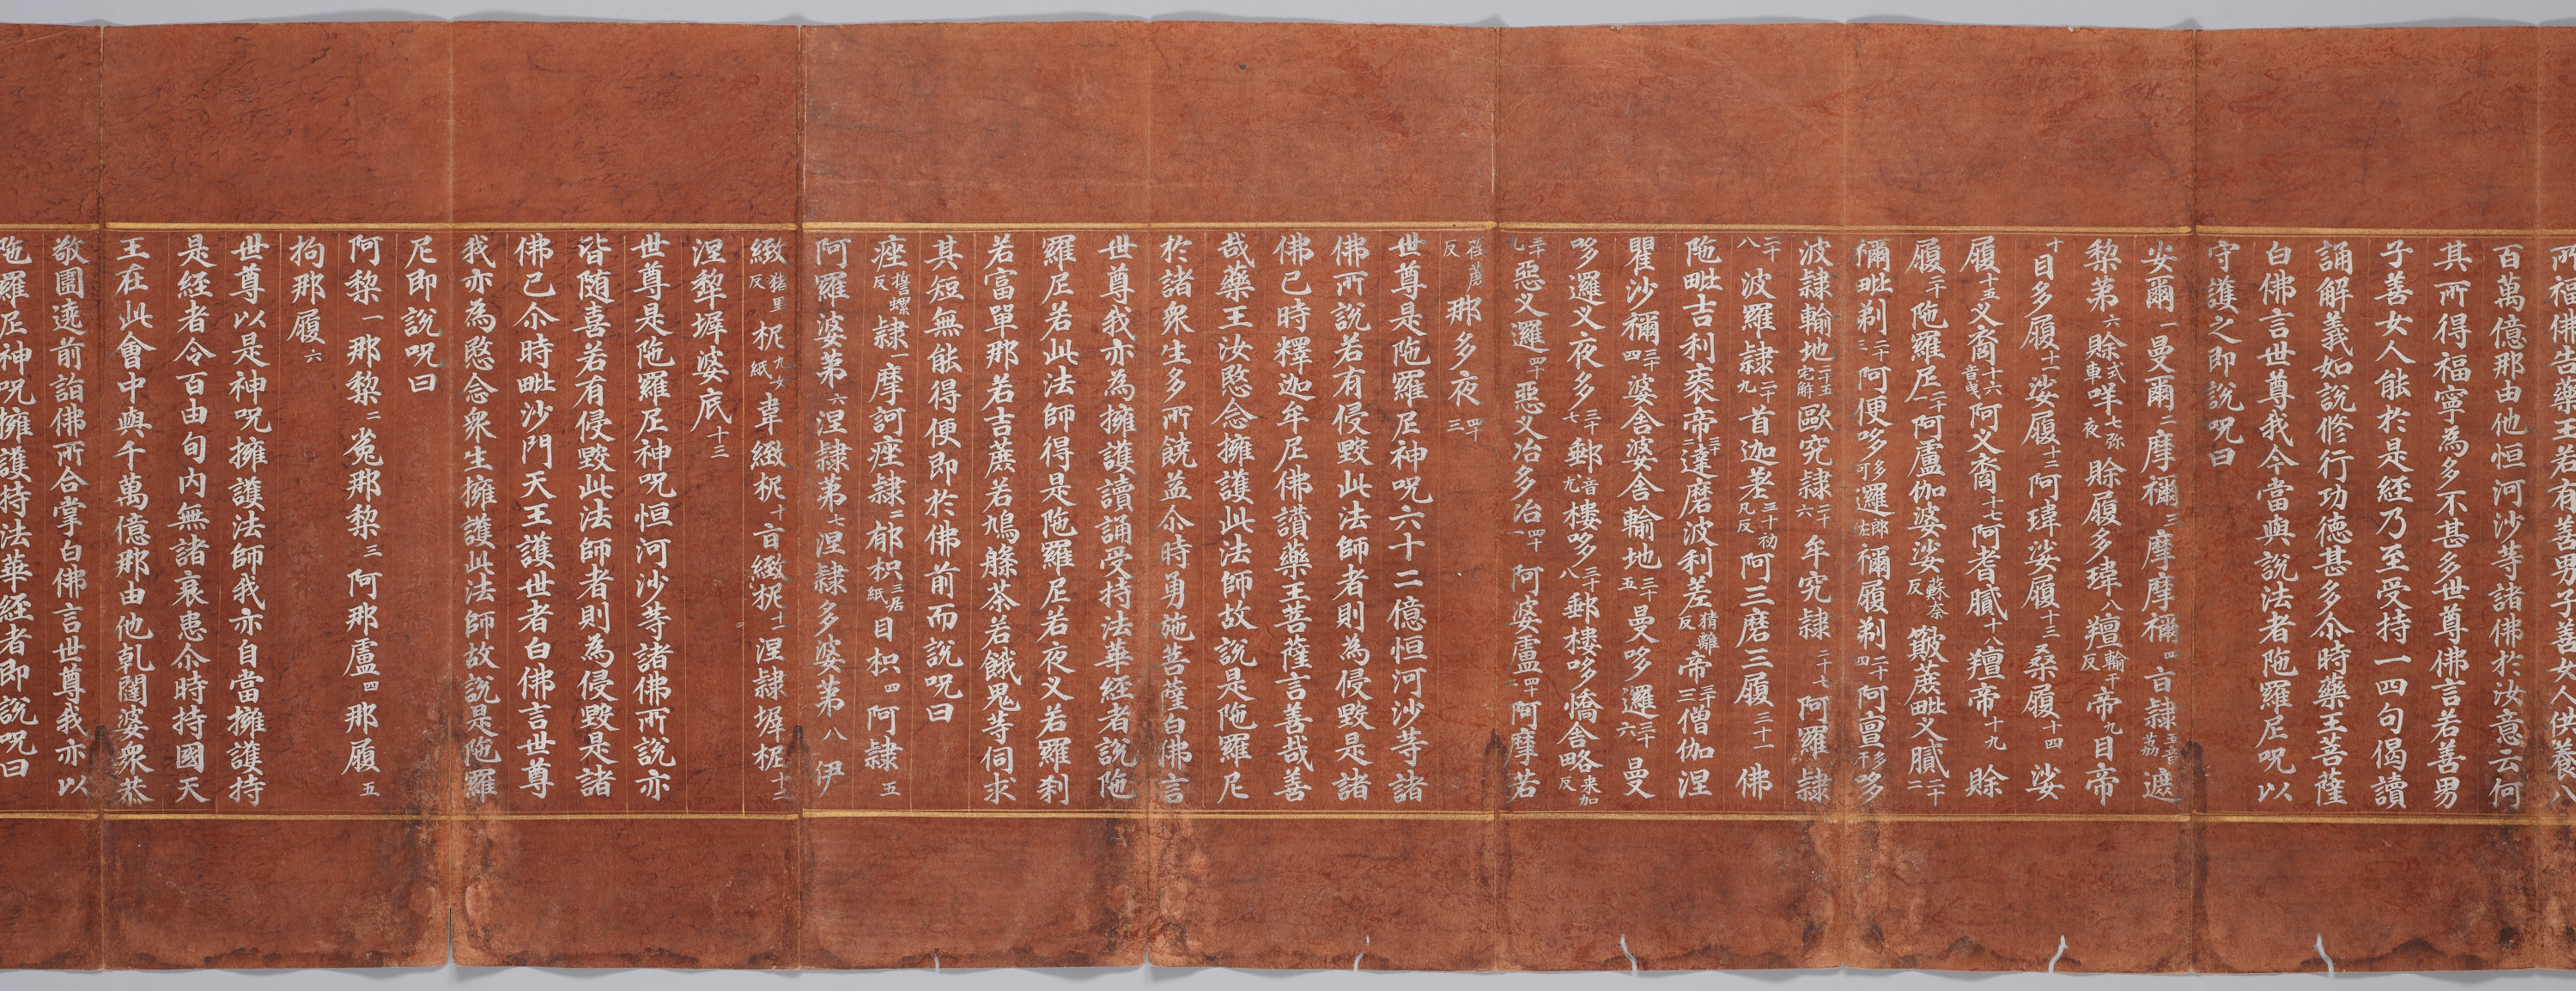 所福佛告藥王若有善男子善女人供養八
百萬億那由他恒河沙等諸佛於汝意云何
其所得福寧為多不甚多世尊佛言若善男
子善女人能於是經乃至受持一四句偈讀
誦解義如說修行功德甚多尒時藥王菩薩
白佛言世尊我今當與說法者陁羅尼呪以
守護之即說呪曰
安爾一曼爾二摩禰三摩摩禰四旨隸五遮
黎第六賒咩七賒履多瑋八羶帝九目帝
十目多履十一娑履十二阿瑋娑履十三桑履十四娑
履十五叉裔十六阿叉裔十七阿耆膩十八羶帝十九賒
履二十陁羅尼二十一阿盧伽婆娑蘇奈反簸蔗毗叉膩二十二
禰毗剃二十三阿便哆多邏郎左禰履剃二十四阿亶哆
波隸輸地二十五歐究隸二十六牟究隸二十七阿羅隸
二十八波羅隸二十九首迦差三十初几反阿三磨三履三十一佛
陁毗吉利袠帝三十二達磨波利差猜離反帝三十三僧伽涅
瞿沙禰三十四婆舍婆舍輸地三十五曼哆邏三十六曼
哆邏叉夜多三十七郵樓哆三十八郵樓哆憍舍略来加反
三十九惡叉邏四十惡叉冶多冶四十一阿婆盧四十二阿摩若
荏蔗反那多夜四十三
世尊是陁羅尼神呪六十二億恒河沙等諸
佛所說若有侵毀此法師者則為侵毀是諸
佛已時釋迦牟尼佛讃藥王菩薩言善哉善
哉藥王汝愍念擁護此法師故說是陁羅尼
於諸衆生多所饒益尒時勇施菩薩白佛言
世尊我亦為擁護讀誦受持法華経者說陁
羅尼若此法師得是陁羅尼若夜叉若羅刹
若富單那若吉蔗若鳩槃茶若餓鬼等伺求
其短無能得便即於佛前而說呪曰
痤誓螺反隸一摩訶痤隸二郁枳三居紙目枳四阿隸五
阿羅婆第六涅隸第七涅隸多婆第八伊
緻猪里反柅九女紙韋緻柅十旨緻柅十一涅隸墀柅十二
涅犂墀婆底十三
世尊是陁羅尼神呪恒河沙等諸佛所說亦
皆随喜若有侵毀此法師者則為侵毀是諸
佛已尒時毗沙門天王護世者白佛言世尊
我亦為愍念衆生擁護此法師故說是陁羅
尼即說呪曰
阿黎一那黎二㝹那黎三阿那盧四那履五
拘那履六
世尊以是神呪擁護法師我亦自當擁護持
是經者令百由旬内無諸衰患尒時持國天
王在此會中與千萬億那由他乹闥婆衆恭
敬圍遶前詣佛所合掌白佛言世尊我亦以
陁羅尼神呪擁護持法華経者即說呪曰